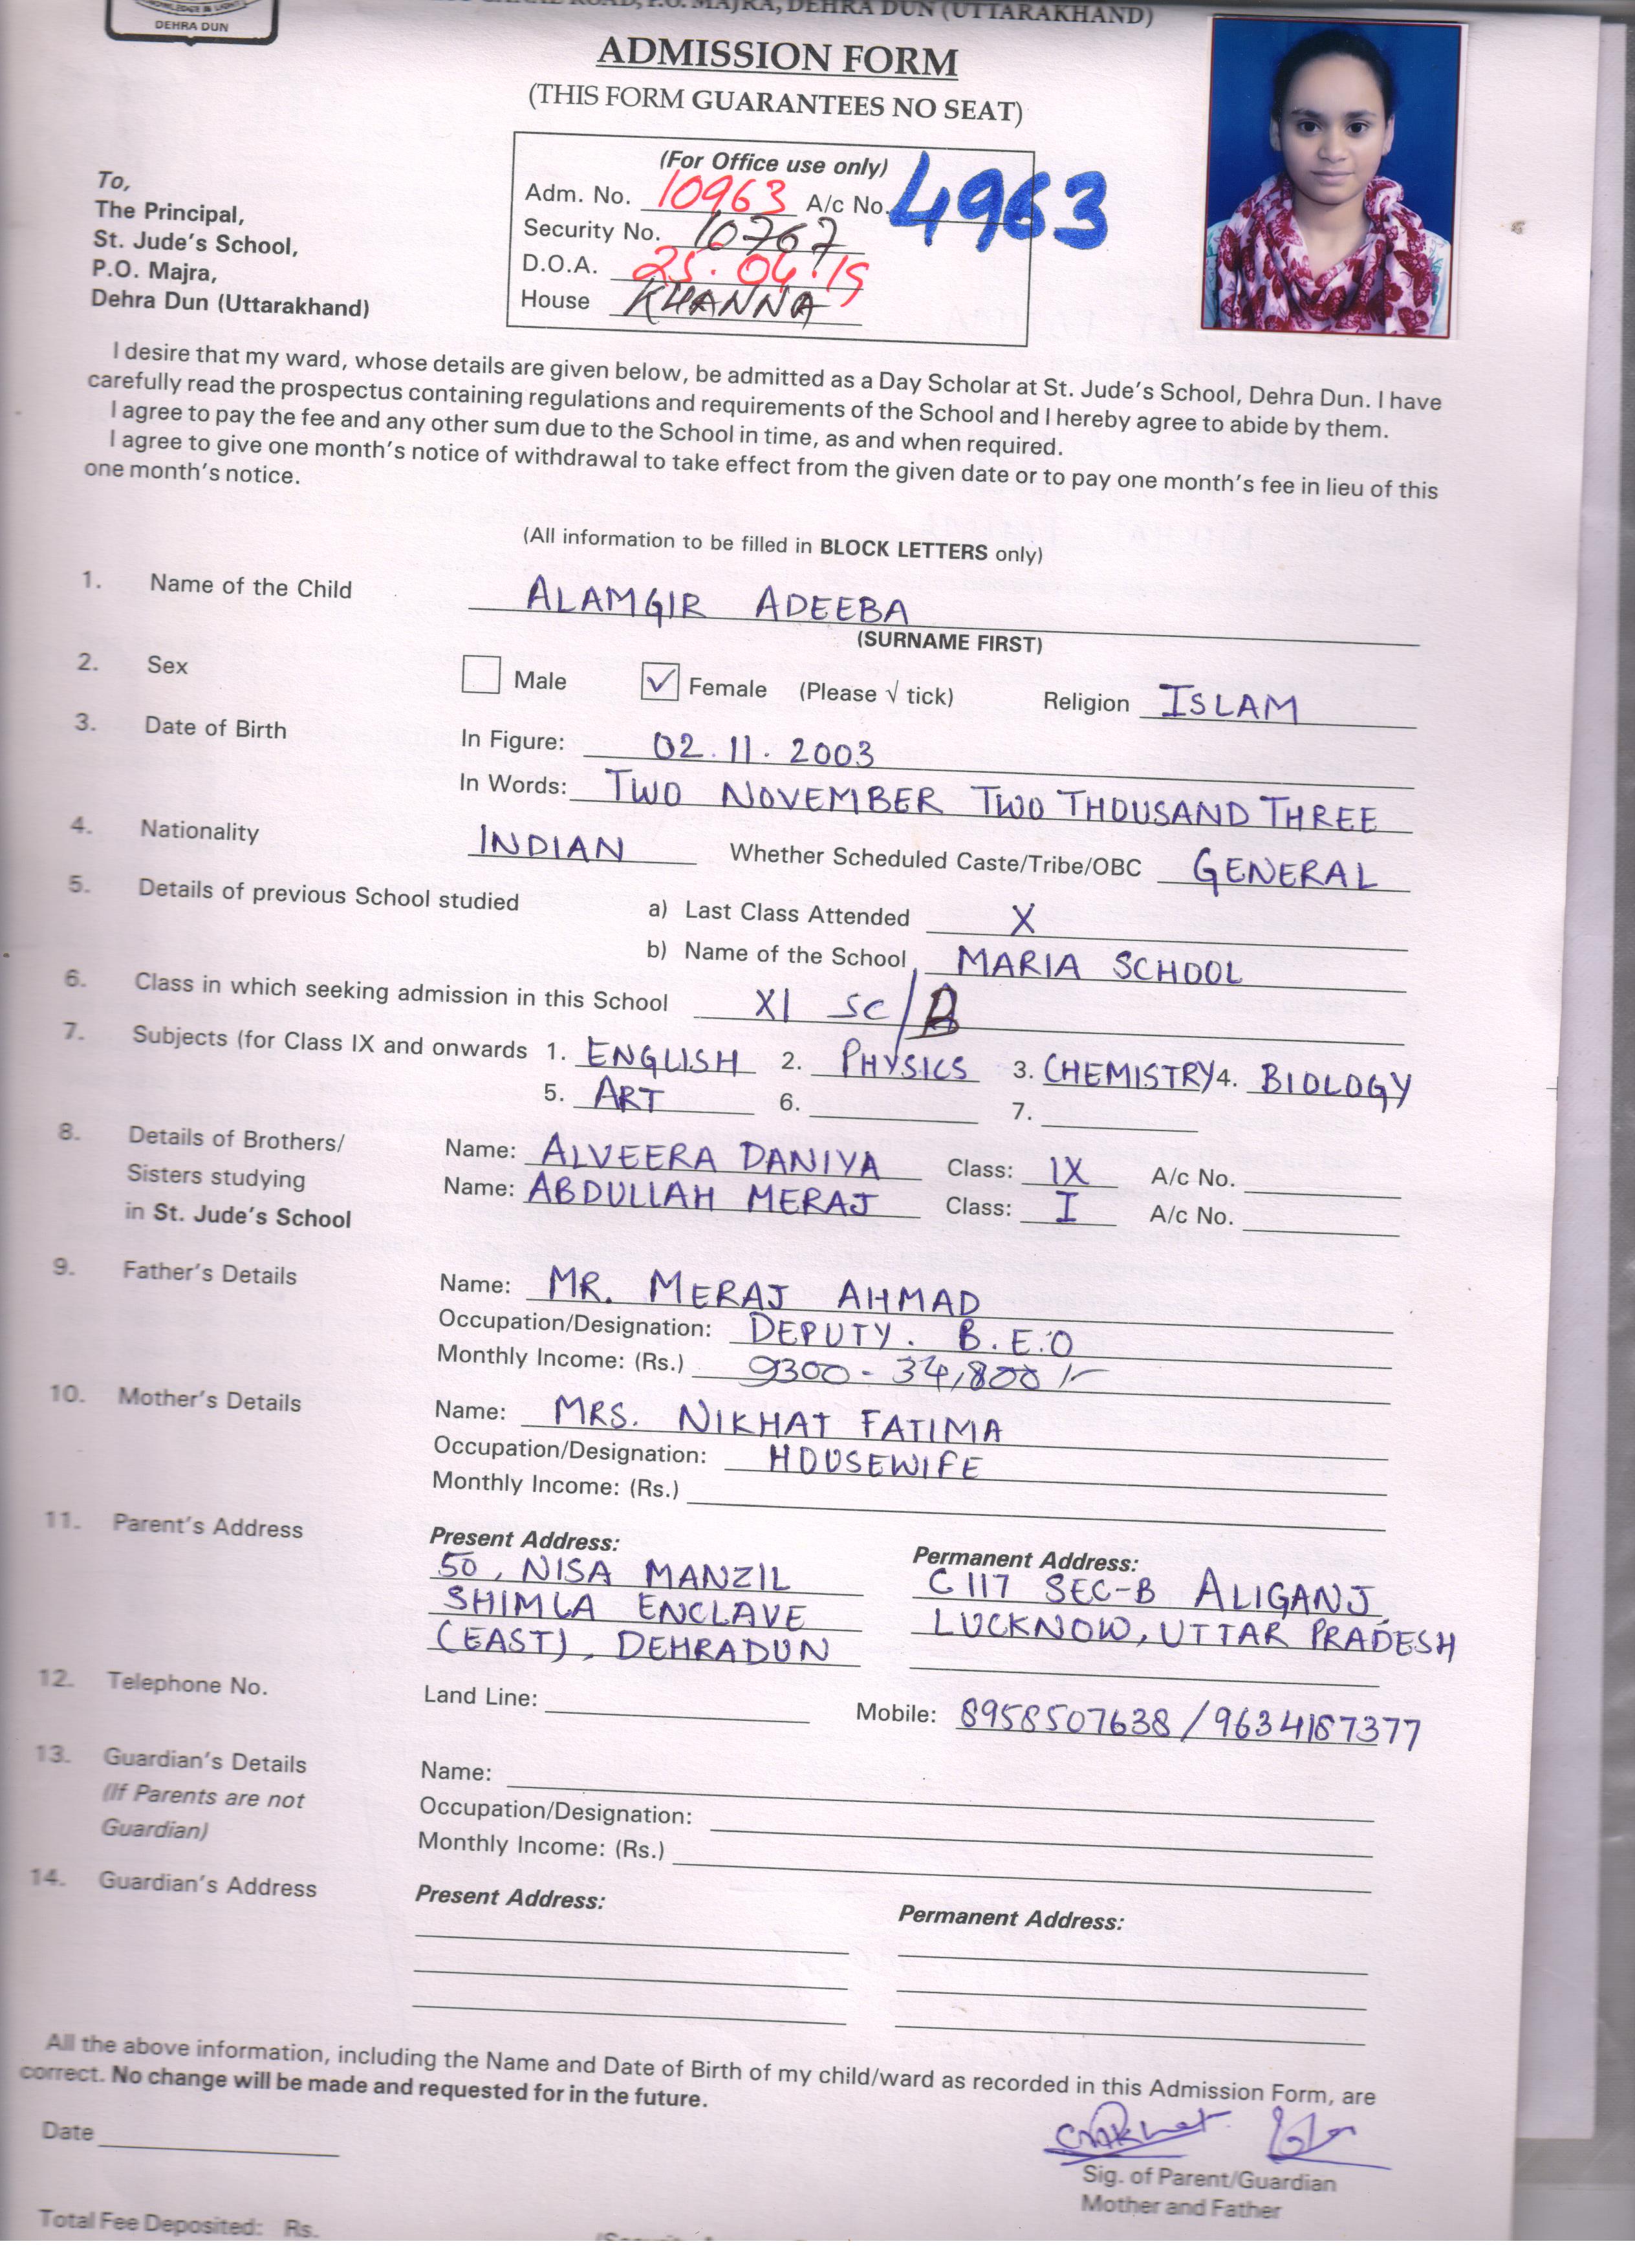 DEHRA DUN
CANAL ROAD, P.O. MAJRA, DEHRA DUN (UTTARAKHAND)
ADMISSION FORM
(THIS FORM GUARANTEES NO SEAT)
(For Office use only)
Adm. No. 10963 A/c No. 4963
Security No. 10767
D.O.A. 25.04.19
House KHANNA
To,
The Principal,
St. Jude's School,
P.O. Majra,
Dehra Dun (Uttarakhand)
I desire that my ward, whose details are given below, be admitted as a Day Scholar at St. Jude's School, Dehra Dun. I have
carefully read the prospectus containing regulations and requirements of the School and I hereby agree to abide by them.
I agree to pay the fee and any other sum due to the School in time, as and when required.
I agree to give one month's notice of withdrawal to take effect from the given date or to pay one month's fee in lieu of this
one month's notice.
(All information to be filled in BLOCK LETTERS only)
1. Name of the Child ALAMGIR ADEEBA
(SURNAME FIRST)
2. Sex Male ✓ Female (Please √ tick) Religion ISLAM
3. Date of Birth In Figure: 02.11.2003
In Words: TWO NOVEMBER TWO THOUSAND THREE
4. Nationality INDIAN Whether Scheduled Caste/Tribe/OBC GENERAL
5. Details of previous School studied a) Last Class Attended X
b) Name of the School MARIA SCHOOL
6. Class in which seeking admission in this School XI SC/
7. Subjects (for Class IX and onwards 1. ENGLISH 2. PHYSICS 3. CHEMISTRY 4. BIOLOGY
5. ART 6. 7.
8. Details of Brothers/ Name: ALVEERA DANIYA Class: IX A/c No.
Sisters studying Name: ABDULLAH MERAJ Class: I A/c No.
in St. Jude's School
9. Father's Details Name: MR. MERAJ AHMAD
Occupation/Designation: DEPUTY. B.E.O
Monthly Income: (Rs.) 9300 - 34,800/-
10. Mother's Details Name: MRS. NIKHAT FATIMA
Occupation/Designation: HOUSEWIFE
Monthly Income: (Rs.)
11. Parent's Address Present Address: Permanent Address:
50, NISA MANZIL C 117 SEC-B ALIGANJ,
SHIMLA ENCLAVE LUCKNOW, UTTAR PRADESH
(EAST), DEHRADUN
12. Telephone No. Land Line: Mobile: 8958507638 / 9634187377
13. Guardian's Details Name:
(If Parents are not Occupation/Designation:
Guardian) Monthly Income: (Rs.)
14. Guardian's Address Present Address: Permanent Address:
All the above information, including the Name and Date of Birth of my child/ward as recorded in this Admission Form, are
correct. No change will be made and requested for in the future.
Date
Sig. of Parent/Guardian
Mother and Father
Total Fee Deposited: Rs.